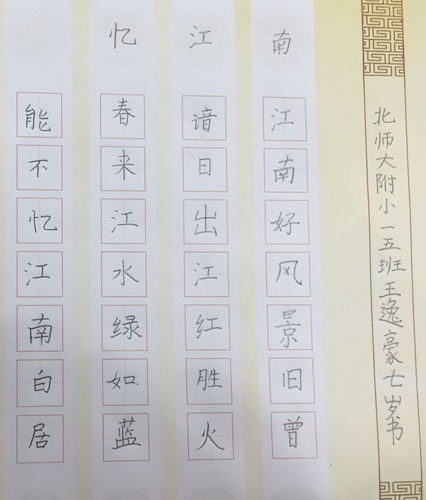 忆江南
江南好风景旧曾
谙日出江红胜火
春来江水绿如蓝
能不忆江南白居
北师大附小一五班王逸豪七岁书